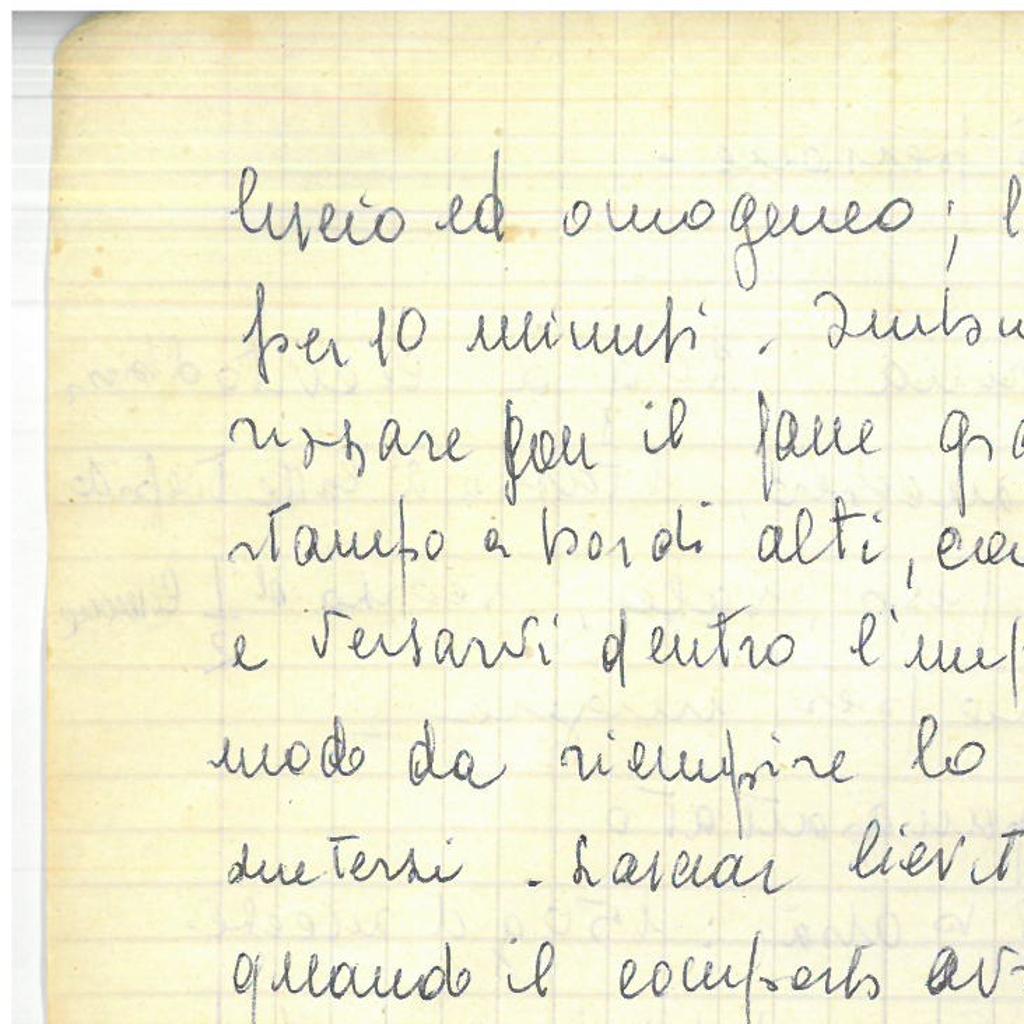 liscio ed omogeneo; l
per 10 minuti. Imbur
rizzare con il pane gra
stampo a bordi alti, co
e versarvi dentro l'imp
modo da riempire lo
due terzi. Lasciar lievit
quando il composto av